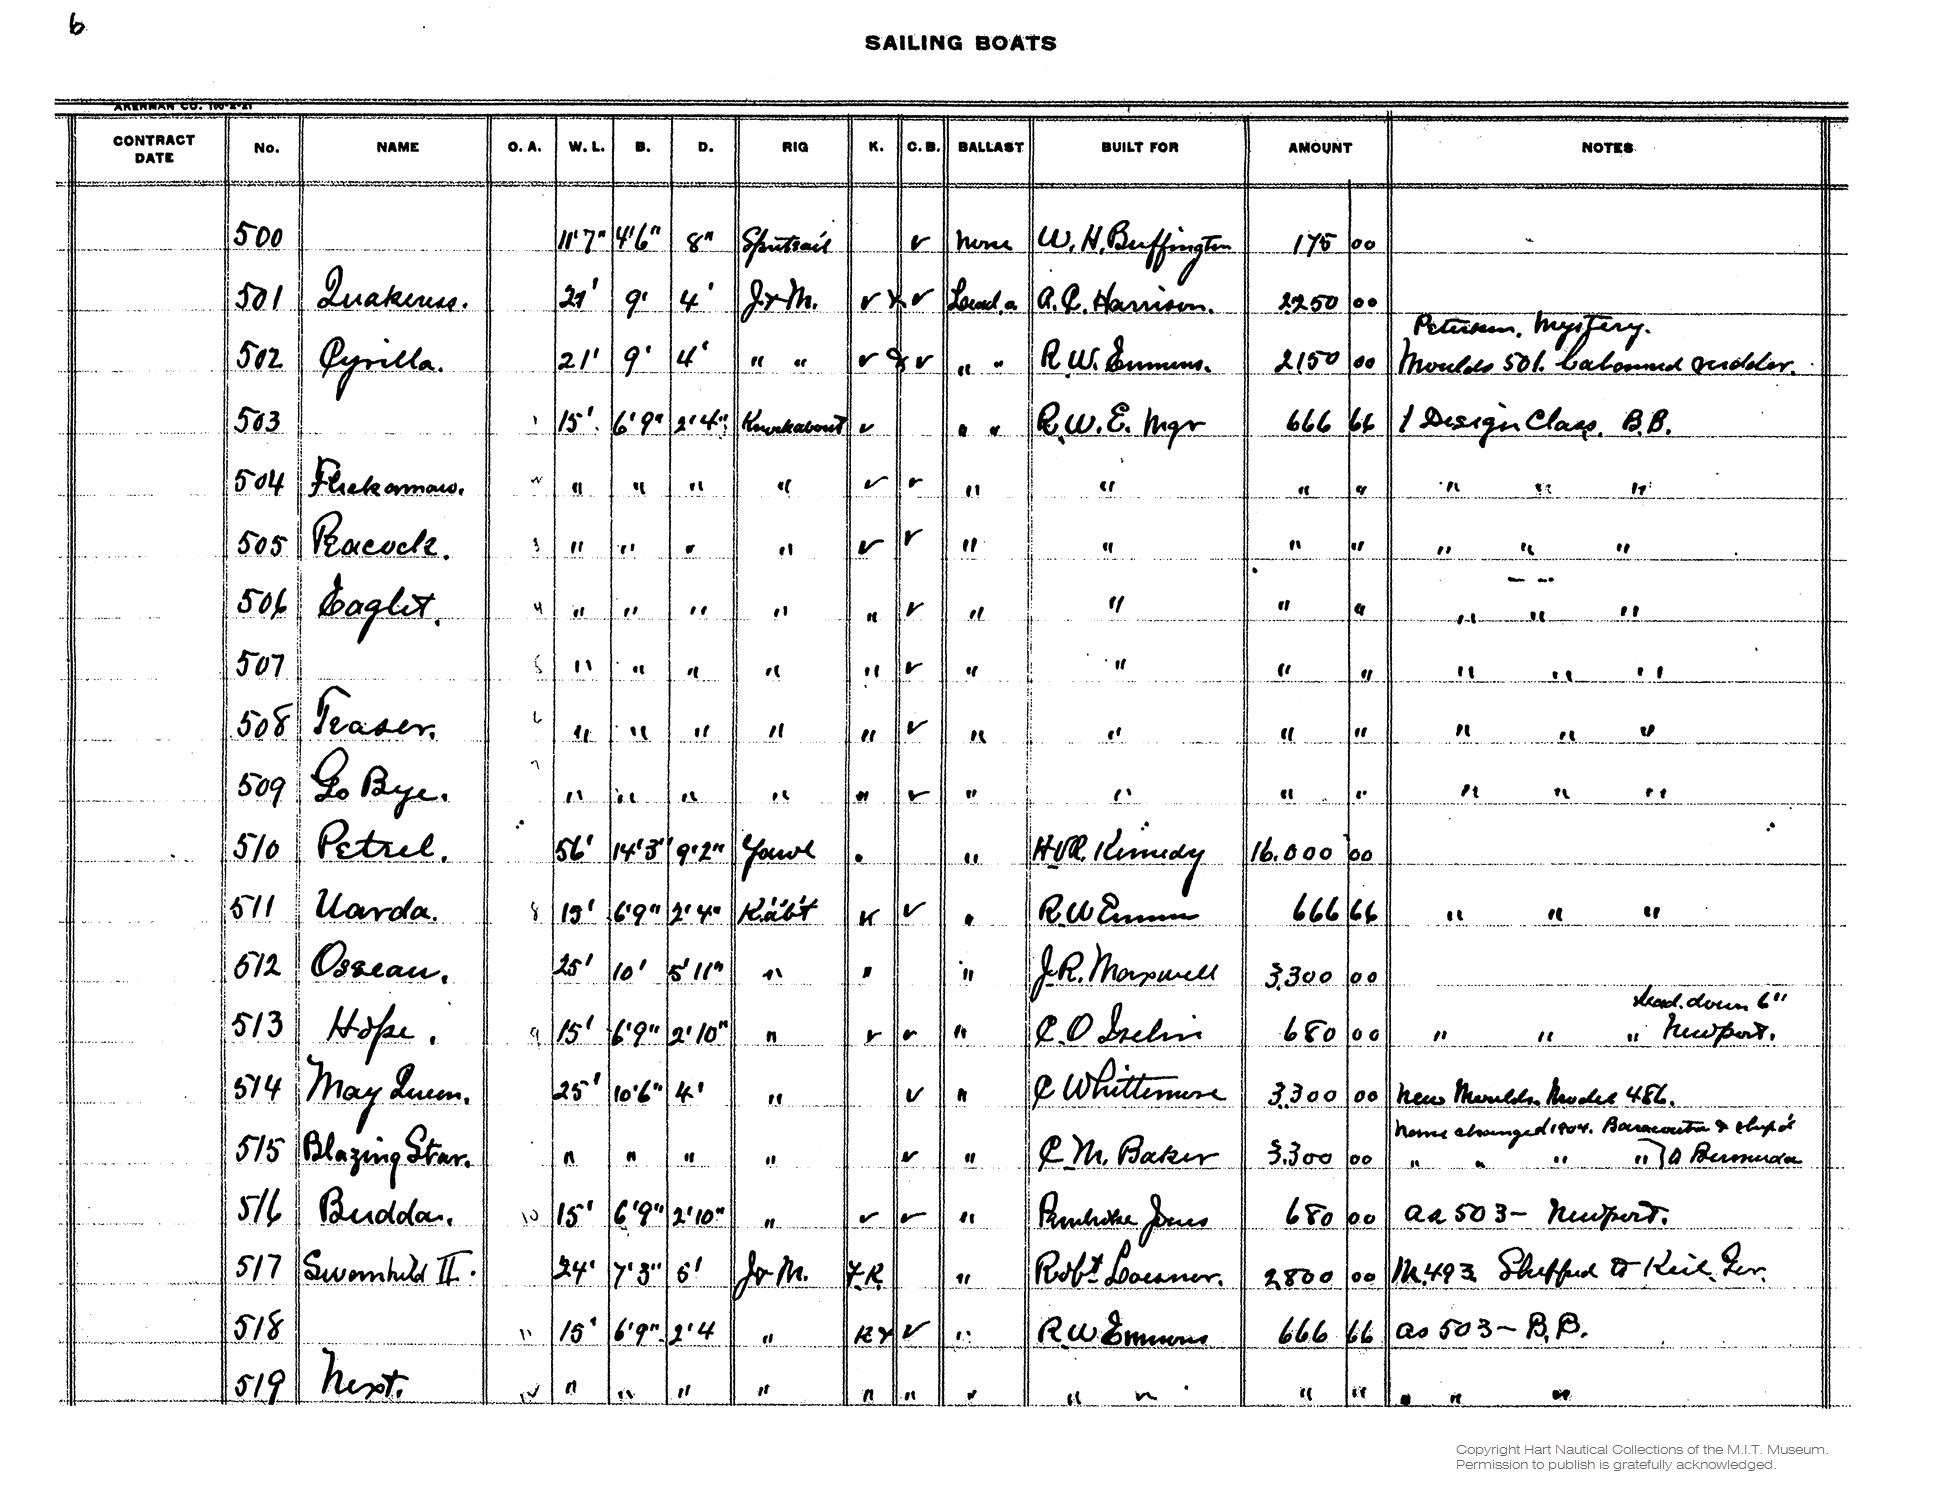 6
SAILING BOATS
AKERMAN CO.
CONTRACT DATE No. NAME O. A. W. L. B. D. RIG K. C. B. BALLAST BUILT FOR AMOUNT NOTES
500 11'7" 4'6" 8" Spritsail v None W. H. Buffington 175 00
501 Quakeress. 21' 9' 4' J & M. v & v Lead. o A. C. Harrison. 2250 00
Peterson. Mystery.
502 Cyrilla. 21' 9' 4' " " v & v " " R. W. Emmons. 2150 00 Moulds 501. rudder.
503 1 15'. 6'9" 2'4" Knockabout v " " R. W. E. Mgr 666 66 1 Design Class. B.B.
504 2 " " " " v v " " " " " " "
505 Peacock. 3 " " " " v v " " " " " " "
506 Eaglet. 4 " " " " " v " " " " " " "
507 5 " " " " " v " " " " " " "
508 Teaser. 6 " " " " " v " " " " " " "
509 Go Bye. 7 " " " " " v " " " " " " "
510 Petrel. 56' 14'3" 9'2" Yawl " " Kennedy 16.000 00
511 Uarda. 8 15' 6'9" 2'4" K'ab't K v " R. W Emmons 666 66 " " "
512 Osseau. 25' 10' 5'11" " " " J. R. Maxwell 3.300 00
Lead. down 6"
513 Hope. 9 15' 6'9" 2'10" " v v " C. O Iselin 680 00 " " " Newport.
514 May Queen. 25' 10'6" 4' " v " C Whittemore 3.300 00 New Moulds. Model 486.
Name changed 1904. Baracouta & ship'd
515 Blazing Star. " " " " v " C. M. Baker 3.300 00 " " " " } to Bermuda
516 Budda. 10 15' 6'9" 2'10" " v v " Pembroke Jones 680 00 as 503 – Newport.
517 Swanhild II. 24' 7'3" 5' J & M. F. K. " Robt. Loesner. 2.800 00 M. 493. Shipped to Keil. Ger.
518 11 15' 6'9" 2'4 " K & v " R. W Emmons 666 66 as 503 – B. B.
519 Next. 12 " " " " " " " " " " " " " "
Copyright Hart Nautical Collections of the M.I.T. Museum.
Permission to publish is gratefully acknowledged.